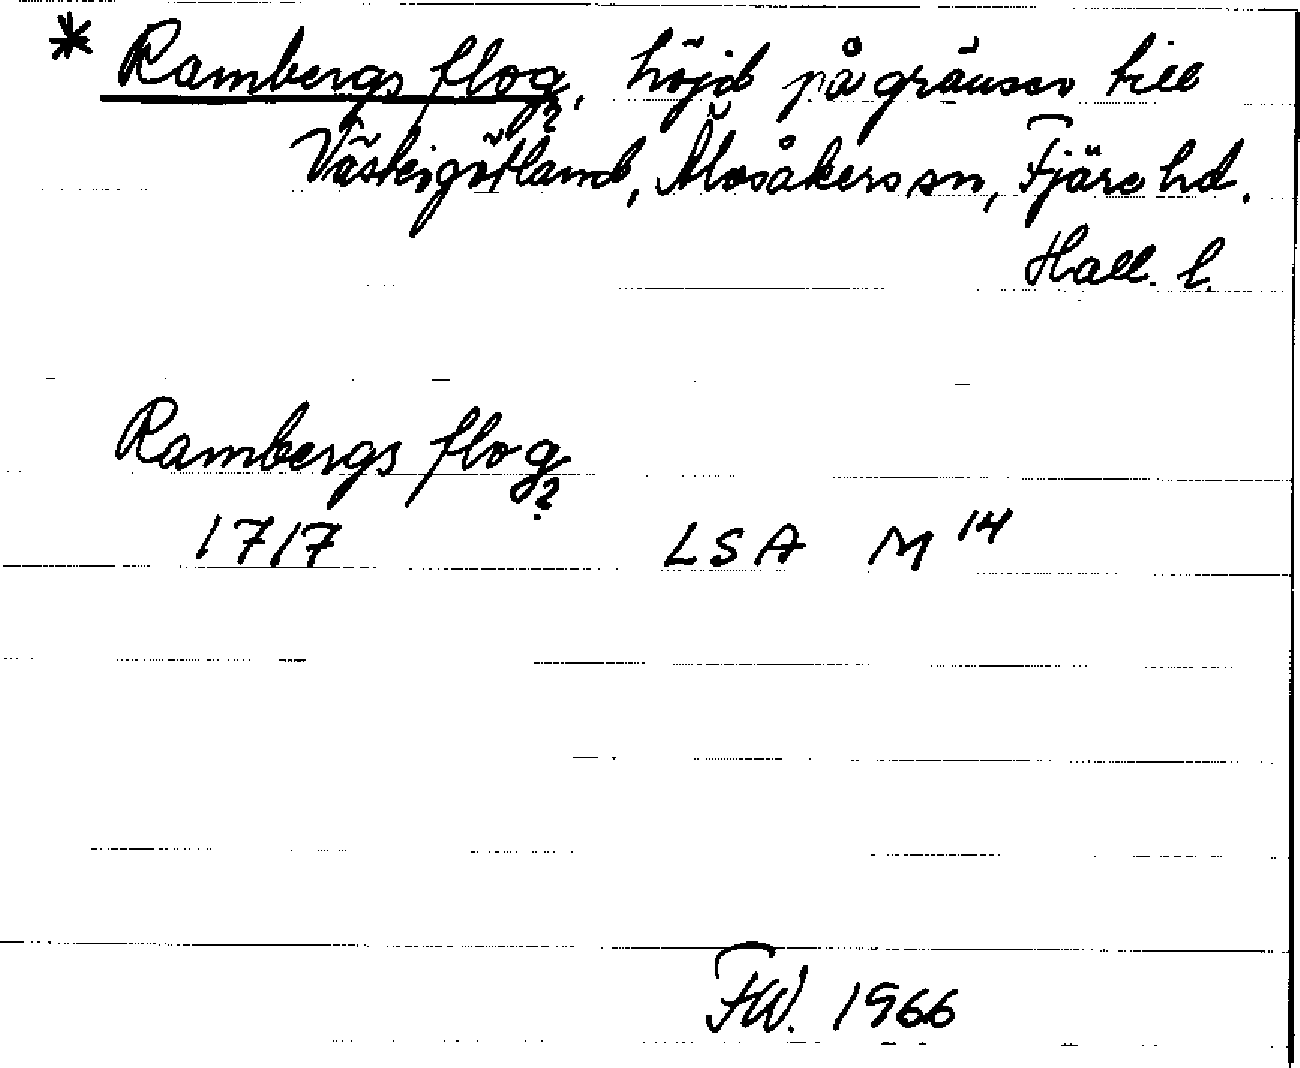 * Rambergs flog, höjd på gränsen till
?
Västergötland, Älvsåkers sn, Fjäre hd.
Hall. l.
Rambergs flog
?
1717 LSA M 14
FW. 1966